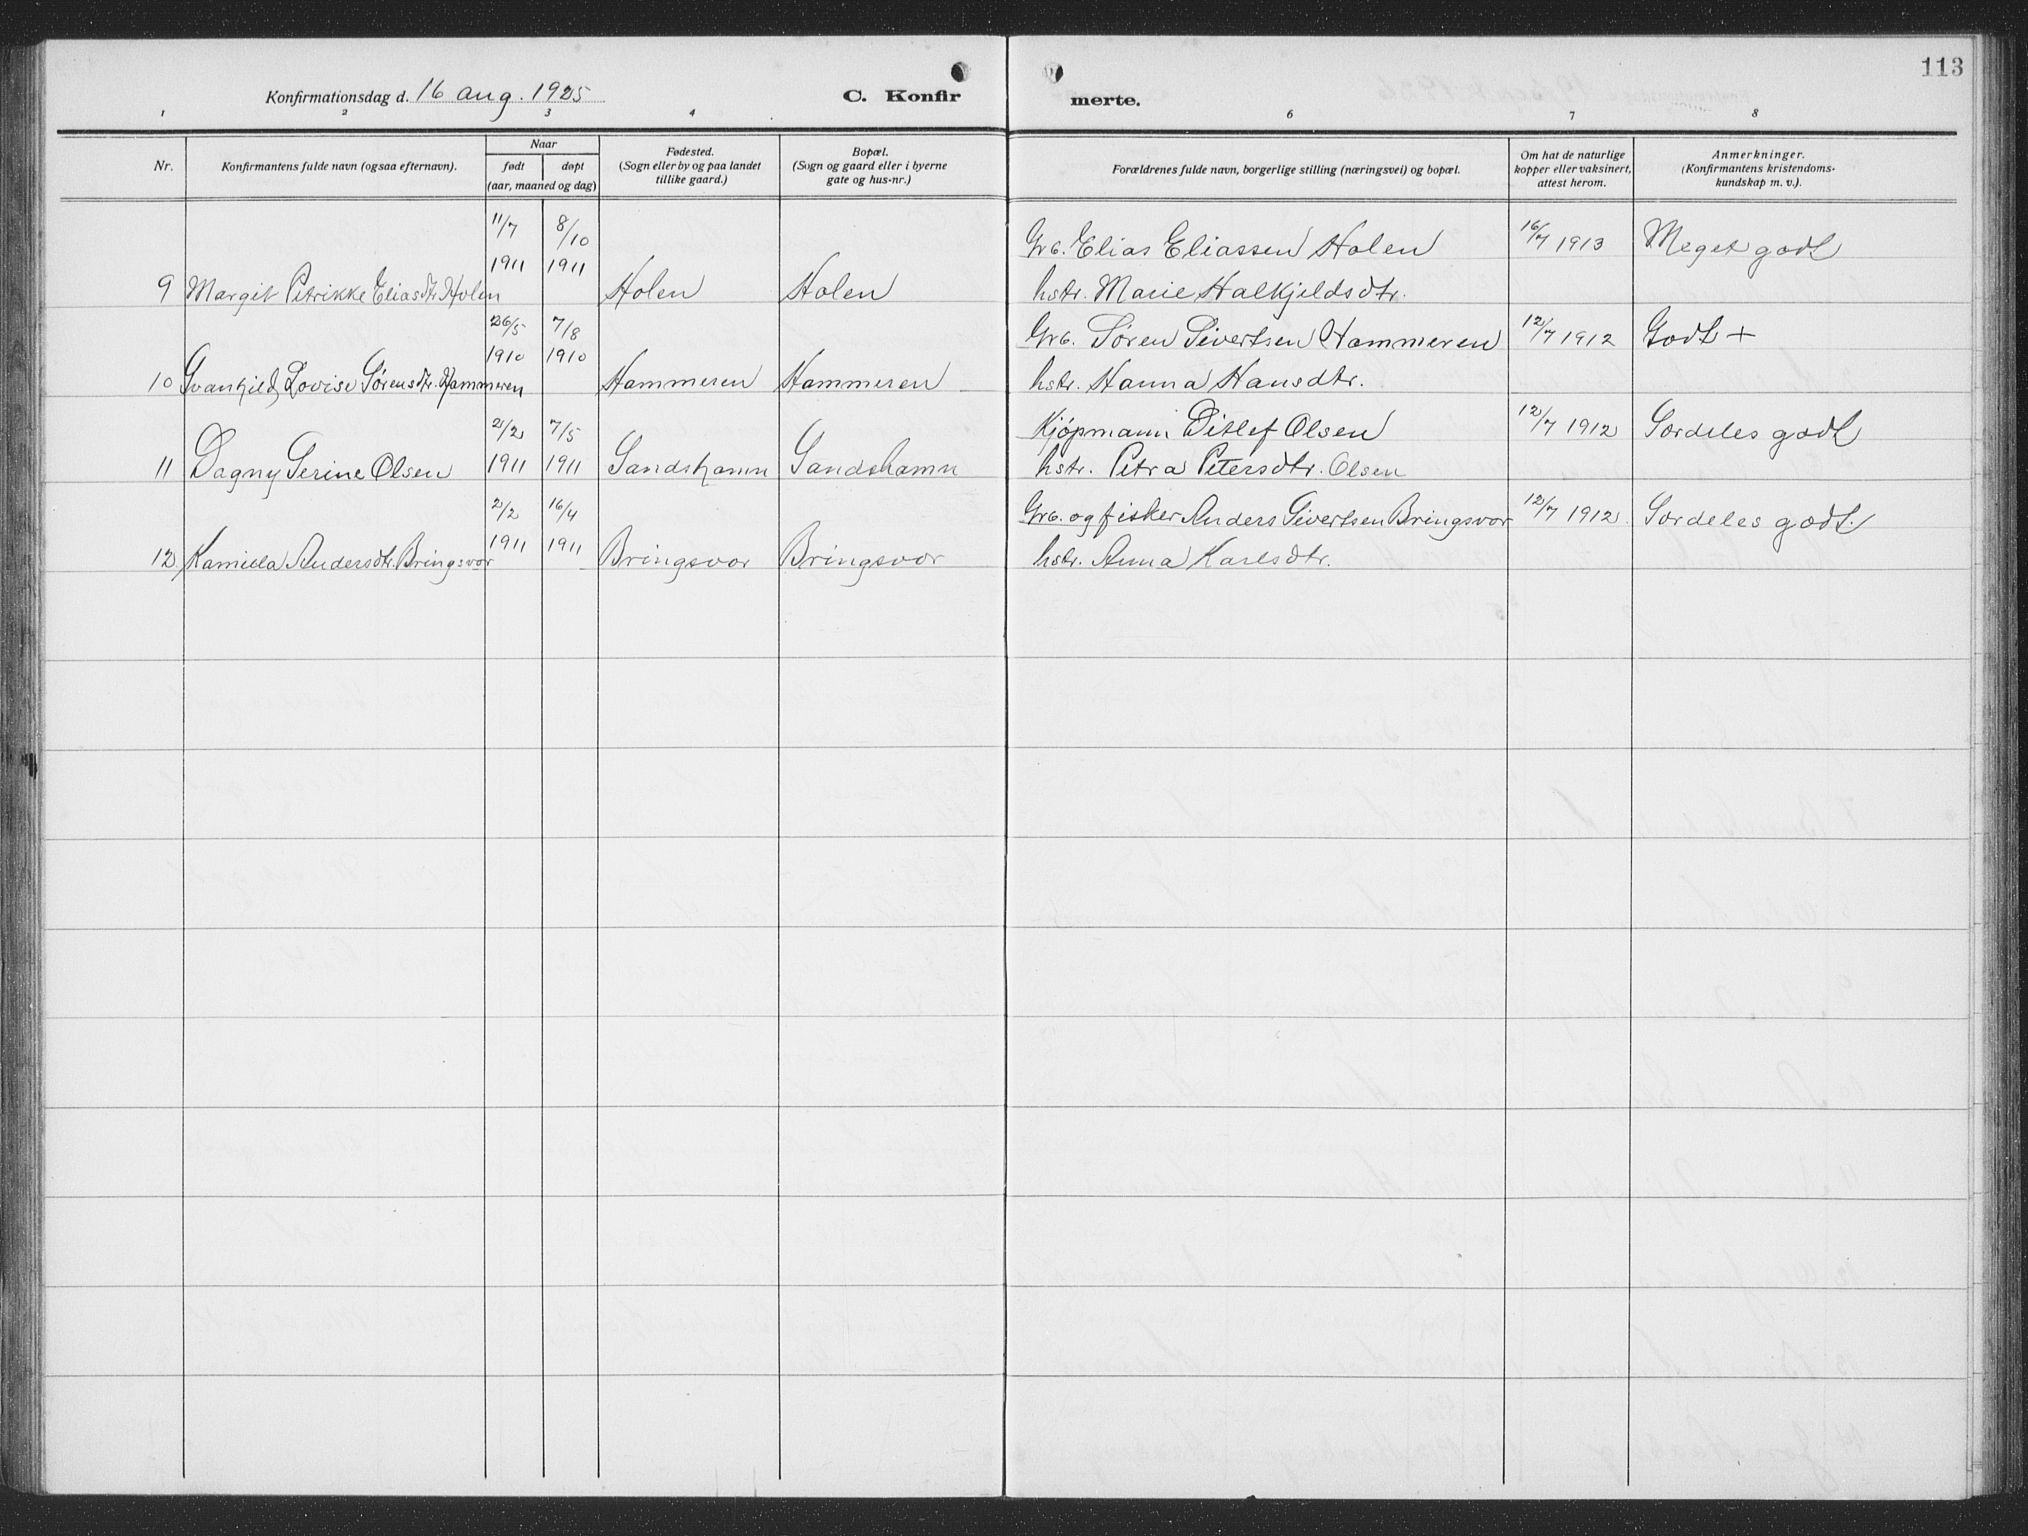 113
Konfirmationsdag d. 16 aug. 1925
C. Konfir
merte.
1 2 3 4 6 7 8
Nr.
Konfirmantens fulde navn (ogsaa efternavn).
Naar
født døpt
(aar, maaned og dag)
Fødested.
(Sogn eller by og paa landet
tillike gaard.)
Bopæl.
(Sogn og gaard eller i byerne
gate og hus-nr.)
Forældrenes fulde navn, borgerlige stilling (næringsvei) og bopæl.
Om hat de naturlige
kopper eller vaksinert,
attest herom.
Anmerkninger.
(Konfirmantens kristendoms-
kundskap m. v.).
11/7 8/10 Grb. Elias Eliassen Holen 16/7 1913 Meget godt
1911 1911
9 Margit Petrikke Eliasdtr. Holen Holen Holen hstr. Marie Halkjeldsdtr.
26/5 7/8 Grb. Søren Sivertsen Hammeren 12/7 1912 Godt +
1910 1910
10 Svanhild Lovise Sørensdtr. Hammeren Hammeren Hammeren hstr. Hanna Hansdtr.
2/2 7/5 Kjøpmann Ditlef Olsen 12/7 1912 Særdeles godt
11 Dagny Serine Olsen 1911 1911 Sandshamn Sandshamn hstr. Petra Petersdtr. Olsen
2/2 16/4 Grb. og fisker Anders Sivertsen Bringsvor 12/7 1912 Særdeles godt.
1911 1911
12 Kamilla Andersdtr. Bringsvor Bringsvor Bringsvor hstr. Anna Karlsdtr.